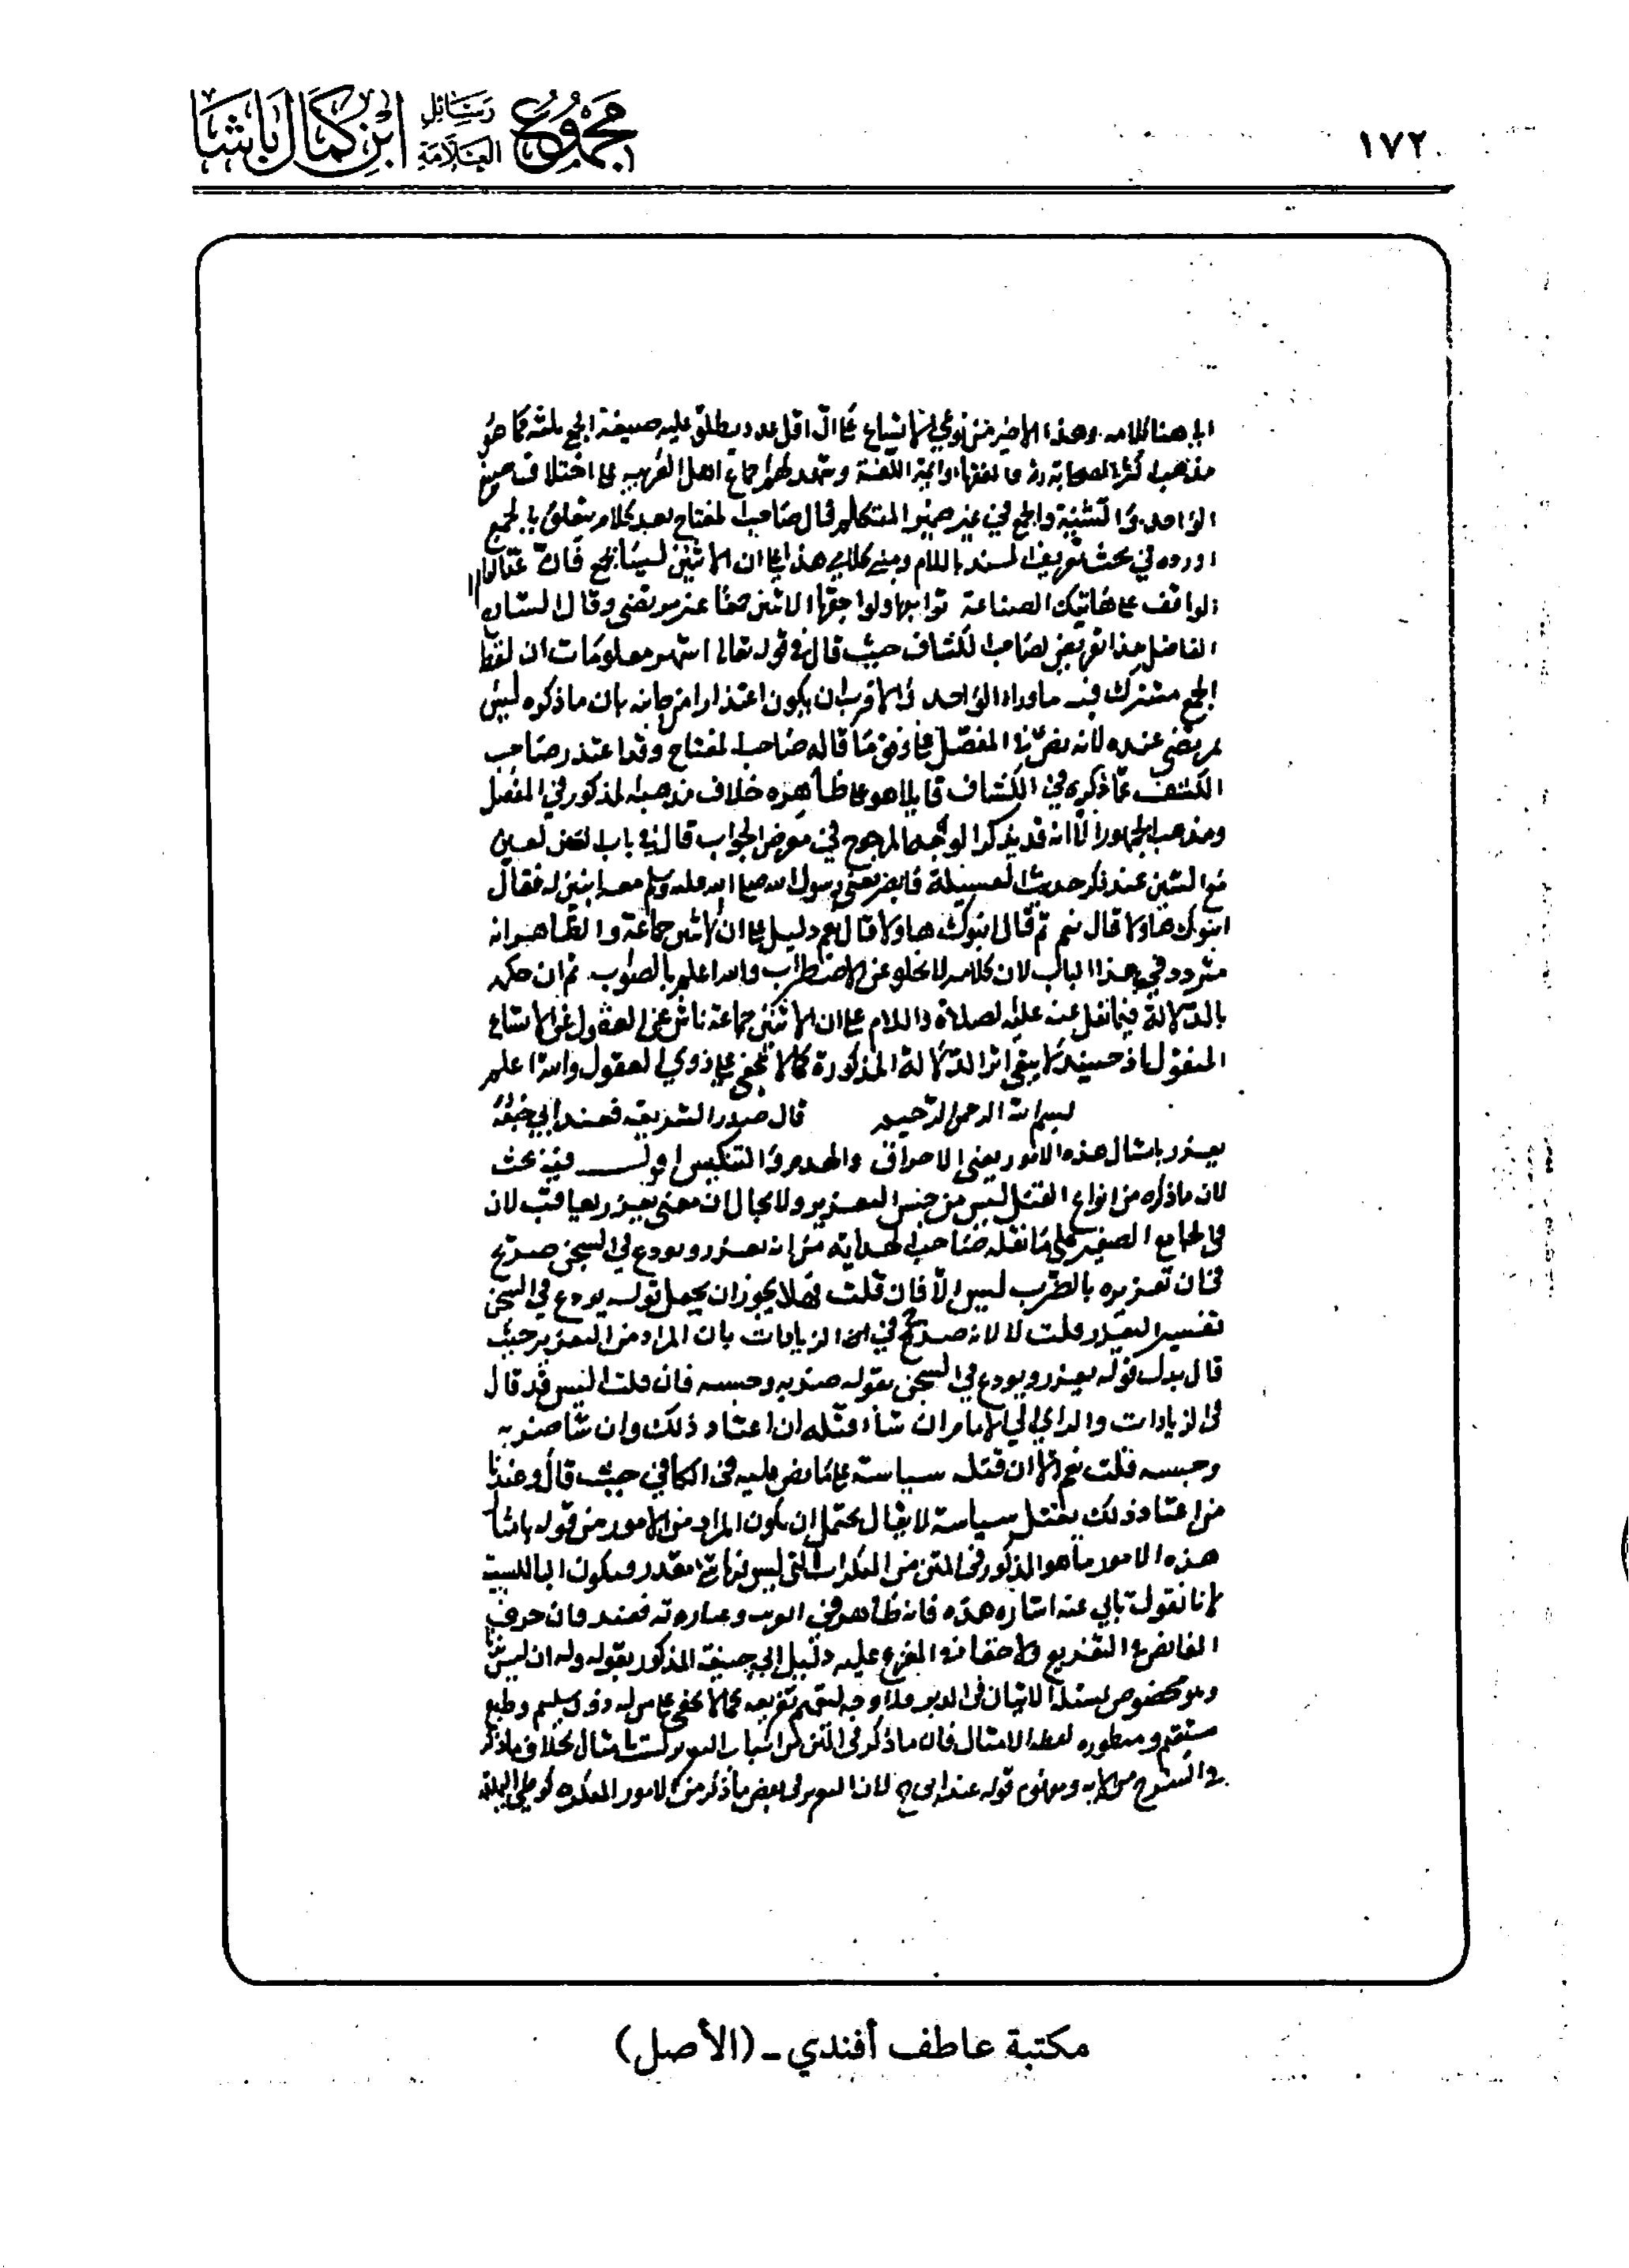 مجموع رسائل العلامة ابن كمال باشا
١٧٢
الى هنا كلامه وهذا الاخير من على ان اقل عدد يطلق عليه صيغة الجمع ثلثة كما هو
مذهب اكثر الصحابة رض وائمة اللغة اهل العربية على اختلاف صيغ
الواحد والتثنية والجمع في غير ضمير المتكلم قال صاحب المفتاح بعد كلام يتعلق بالجمع
اورده في بحث تعريف المسند باللام ومبنى كلامي هذا على ان الاثنين ليسا بجمع فان
الواقف على هاتيك الصناعة الاثنين جمعا عند مرتضى وقال الشارح
الفاضل هذا تعريض لصاحب الكشاف حيث قال في قوله تعالى اشهر معلومات ان لفظ
الجمع مشترك فيه ما وراء الواحد والاقرب ان يكون اعتذارا من جانبه بان ما ذكره ليس
بمرتضى عنده لانه نص في المفصل على وفق ما قاله صاحب المفتاح وقد اعتذر صاحب
الكشف عما ذكره في الكشاف قايلا هو على ظاهره خلاف مذهبه المذكور في المفصل
ومذهب الجمهور الا انه قد يذكر الوجه المرجوح في معرض الجواب قال في باب
مع الشين عند ذكر حديث العسيلة فابصر يعني رسول الله صلى الله عليه وسلم معه ابنين له فقال
ابنوك هاولا قال نعم ثم قال ابنوك هاولا قال نعم دليل على ان الاثنين جماعة والظاهر انه
متردد في هذا الباب لان كلامه لا يخلو عن الاضطراب والله اعلم بالصواب ثم ان حكمه
بالدلالة فيما نقل عنه عليه الصلاة والسلام على ان الاثنين جماعة ناش عن العدول عن الاتباع
المنقول اذ حينئذ لا يبقى اثر الدلالة المذكورة كما لا يخفى على ذوي العقول والله اعلم
بسم الله الرحمن الرحيم قال صدر الشريعة فعند ابي حنيفة
يعزر بامثال هذه الامور يعني الاحراق والهدم والتنكيس اقول فيه بحث
لان ما ذكره من انواع القتل ليس من جنس التعزير ولا مجال لان معنى يعزر يعاقب لان
في الجامع الصغير على ما نقله صاحب الهداية من انه يعزر ويودع في السجن صريح
في ان تعزيره بالضرب ليس الا فان قلت فهلا يجوز ان يجعل قوله يودع في السجن
تفسيرا ليعزر قلت لا لانه صريح في الزيادات بان المراد من التعزير حيث
قال بدل قوله يعزر ويودع في السجن بقوله ضربه وحبسه فان قلت اليس قد قال
في الزيادات والراي الى الامام ان شاء قتله ان اعتاد ذلك وان شا ضربه
وحبسه قلت نعم الا ان قتله سياسة على ما نص عليه في الكافي حيث قال وعندنا
من اعتاد ذلك يقتل سياسة لا يقال يحتمل ان يكون المراد من الامور من قوله بامثال
هذه الامور ما هو المذكور في المتن من المنكرات التي ليس فيها مقدر ويكون البا للسببية
لانا نقول يابى عنه اشارة هذه فانه ظاهر في القريب وعبارته فعند فان حرف
الفا نص في التفريع ولا خفا في المفرع عليه دليل ابي حنيفة المذكور بقوله وله ان ليس بزنا
وهو مخصوص بمسئلة الاتيان في الدبر فلا وجه لتعميم تفريعه كما لا يخفى على من له ذوق سليم وطبع
مستقيم لفظ الامثال فان ما ذكر في المتن من اسباب التعزير ليست بامثال بخلاف ما ذكر
في الشرح قوله عند ابى ح لان التعزير في بعض ما ذكر من الامور المنكرة كوطي البهيمة
مكتبة عاطف أفندي - (الأصل)